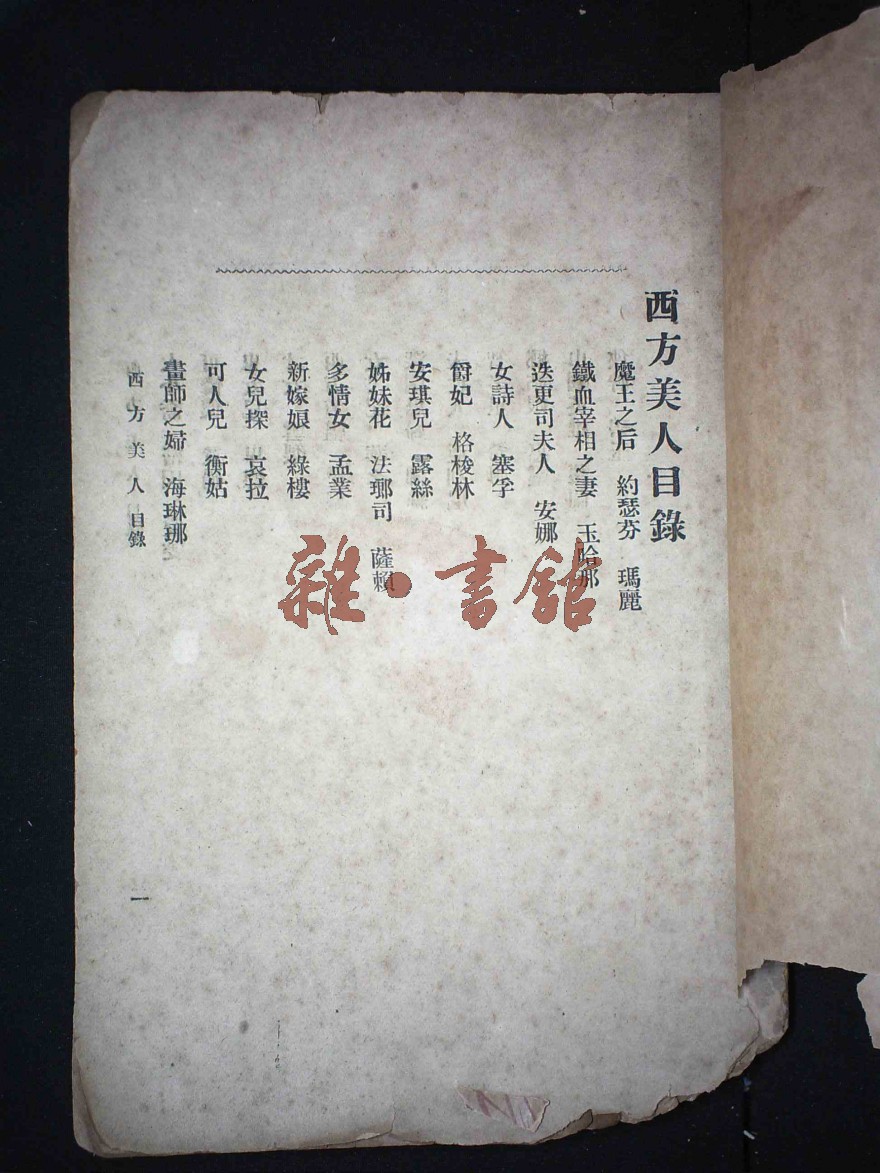 西方美人目錄
魔王之后 約瑟芬 瑪麗
鐵血宰相之妻 玉哈那
迭更司夫人 安娜
女詩人 塞孚
爵妃 格梭林
安琪兒 露絲
姊妹花 法瑯司 薩賴
多情女 孟業
新嫁娘 綠樓
女兒探 哀拉
可人兒 衡姑
畫師之婦 海琳那
西方美人目錄
一
雜·書館